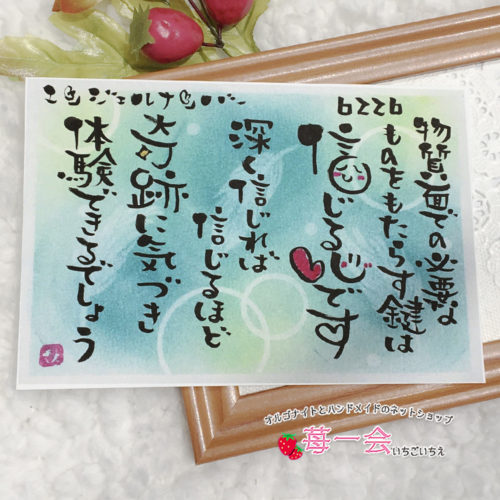 エンジェルナンバー
6226
物質面での必要な
ものをもたらす鍵は
信じる心です
深く信じれば
信じるほど
奇跡に気づき
体験できるでしょう
オルゴナイトとハンドメイドのネットショップ
苺一会
いちごいちえ